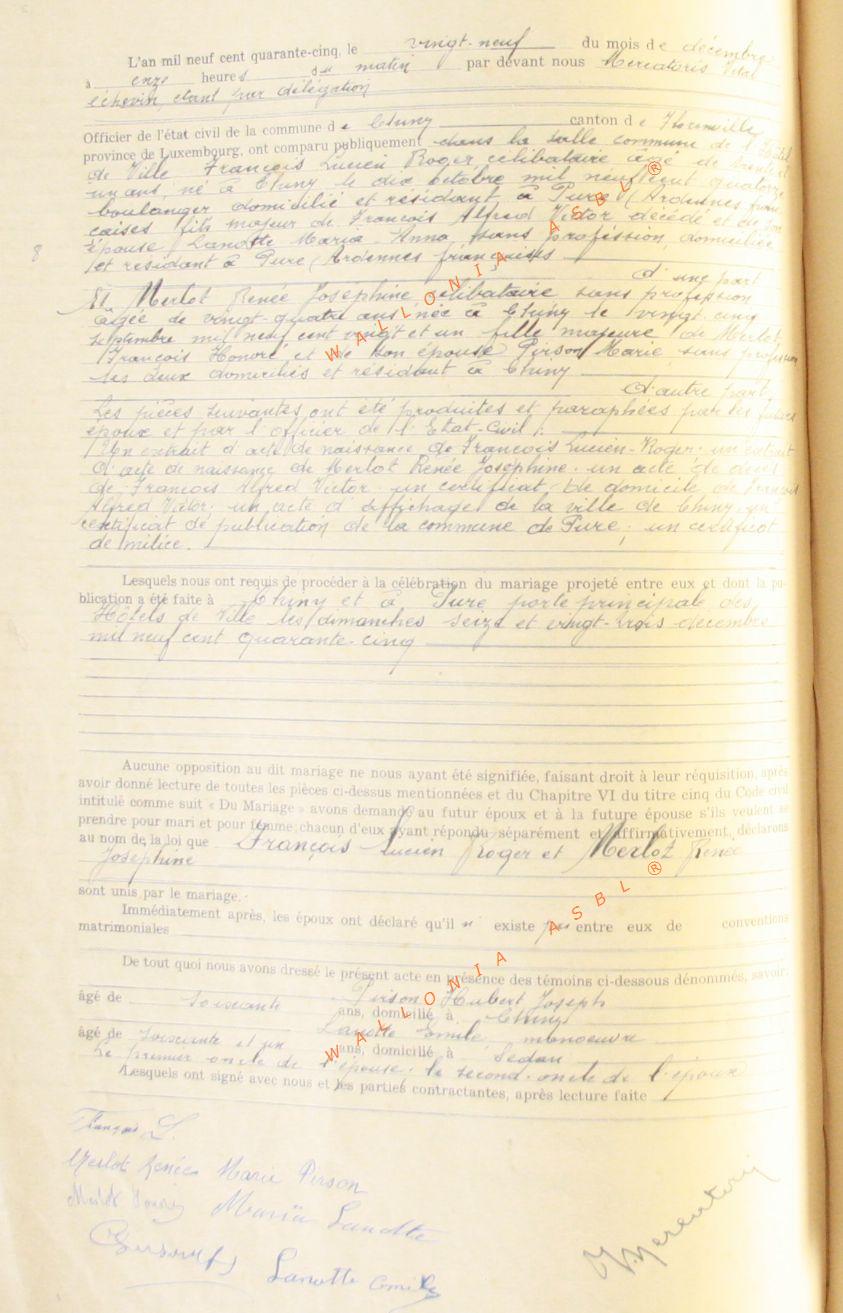 L'an mil neuf cent quarante-cinq, le vingt-neuf du mois de décembre
à onze heures du matin par devant nous Mercatoris Vital
échevin, étant par délégation
Officier de l'état civil de la commune de Chiny canton de Florenville
province de Luxembourg, ont comparu publiquement dans la salle commune de l'Hôtel
de Ville François Lucien Roger célibataire âgé de trente et
un ans, né à Chiny le dix octobre mil neuf cent quatorze
boulanger domicilié et résidant à Pure (Ardennes fran
caises fils majeur de François Alfred Victor décédé et de son
épouse Lanotte Maria Anna, sans profession, domiciliée
et résidant à Pure (Ardennes françaises
D'une part
Et Merlot Renée Joséphine célibataire sans profession
âgée de vingt-quatre ans née à Chiny le vingt cinq
septembre mil neuf cent vingt et un fille majeure de Merlot
François Honoré et de son épouse Pirson Marie sans profession
les deux domiciliés et résidant à Chiny
D'autre part
Les pièces suivantes ont été produites et paraphées par les futurs
époux et par l'officier de l'Etat-Civil :
Un extrait d'acte de naissance de François Lucien-Roger; un extrait
d'acte de naissance de Merlot Renée Joséphine; un acte de décès
de François Alfred Victor; un certificat de domicile de François
Alfred Victor; un acte d'affichage de la ville de Chiny; un
certificat de publication de la commune de Pure; un certificat
de milice.
Lesquels nous ont requis de procéder à la célébration du mariage projeté entre eux et dont la pu-
blication a été faite à Chiny et à Pure porte principale des
Hôtels de Ville les dimanches seize et vingt-trois décembre
mil neuf cent quarante-cinq
Aucune opposition au dit mariage ne nous ayant été signifiée, faisant droit à leur réquisition, après
avoir donné lecture de toutes les pièces ci-dessus mentionnées et du Chapitre VI du titre cinq du Code civil
intitulé comme suit « Du Mariage » avons demandé au futur époux et à la future épouse s'ils veulent se
prendre pour mari et pour femme chacun d'eux ayant répondu séparément et affirmativement, déclarons
au nom de la loi que François Lucien Roger et Merlot Renée
Joséphine
sont unis par le mariage.
Immédiatement après, les époux ont déclaré qu'il n' existe pas entre eux de conventions
matrimoniales
De tout quoi nous avons dressé le présent acte en présence des témoins ci-dessous dénommés, savoir:
Pirson Hubert Joseph
âgé de soixante ans, domicilié à Chiny
Lanotte Emile manoeuvre
âgé de soixante et un ans, domicilié à Sedan
Le premier oncle de l'épouse; le second oncle de l'époux
Lesquels ont signé avec nous et les parties contractantes, après lecture faite
François L.
Merlot Renée Marie Pirson
Merlot Maria Lanotte
Lanotte Emile
WALLONIA ASBL ®
WALLONIA ASBL ®